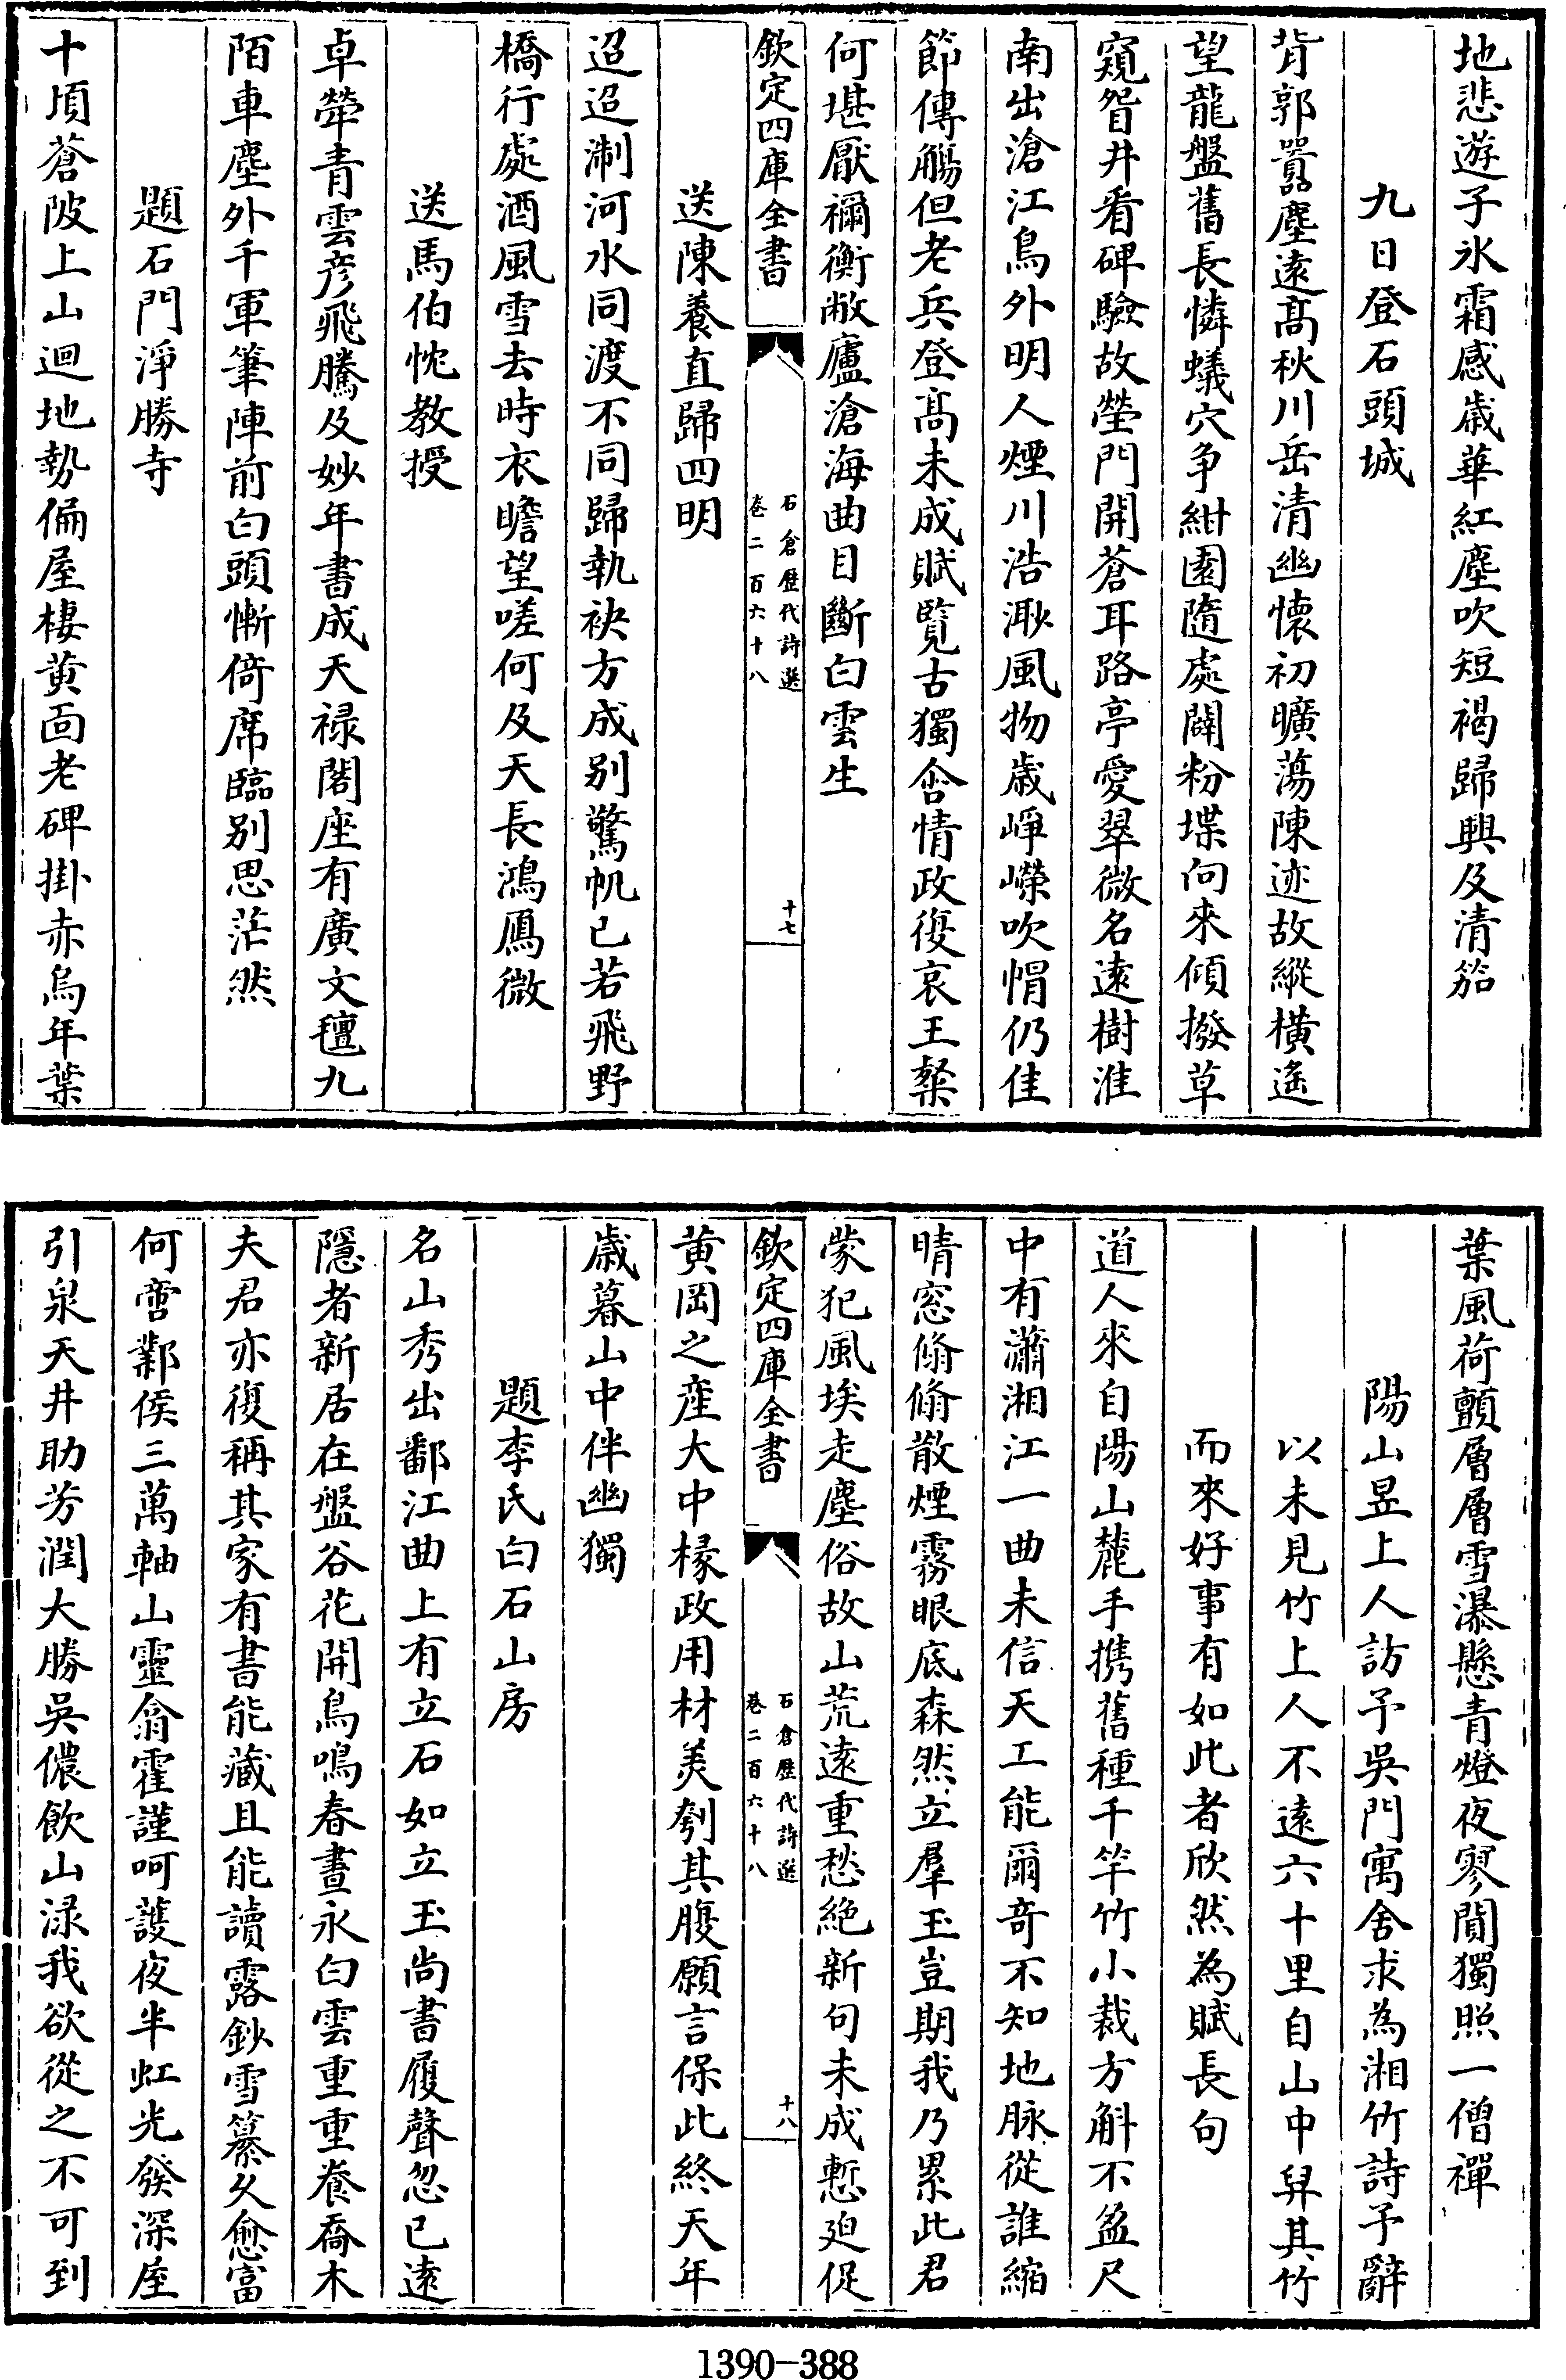 地悲遊子氷霜感歳華紅塵吹短褐歸興及清笳
九日登石頭城
背郭囂塵逺髙秋川岳清幽懷初曠蕩陳迹故縱橫遙
望龍盤舊長憐蟻穴争紺園隨處闢粉堞向來傾撥草
窺眢井看碑驗故塋門開蒼耳路亭愛翠微名逺樹淮
南出滄江鳥外明人煙川浩渺風物歳崢嶸吹帽仍佳
節傳觴但老兵登髙未成賦覽古獨含情政復哀王粲
何堪厭禰衡敝廬滄海曲目斷白雲生
欽定四庫全書
石倉歴代詩選
卷二百六十八
十七
送陳養直歸四明
迢迢淛河水同渡不同歸執袂方成别驚帆已若飛野
橋行處酒風雪去時衣瞻望嗟何及天長鴻鴈微
送馬伯忱教授
卓犖青雲彦飛騰及妙年書成天禄閣座有廣文氊九
陌車塵外千軍筆陣前白頭慚倚席臨别思茫然
題石門淨勝寺
十頃蒼陂上山迴地勢偏屋棲黄面老碑掛赤烏年葉
葉風荷顫層層雪瀑懸青燈夜寥閴獨照一僧禪
陽山昱上人訪予吳門寓舍求為湘竹詩予辭
以未見竹上人不逺六十里自山中舁其竹
而來好事有如此者欣然為賦長句
道人來自陽山麓手携舊種千竿竹小裁方斛不盈尺
中有瀟湘江一曲未信天工能爾奇不知地脉從誰縮
晴窓翛翛散煙霧眼底森然立羣玉豈期我乃累此君
蒙犯風埃走塵俗故山荒逺重愁絶新句未成慙廹促
欽定四庫全書
石倉歴代詩選
卷二百六十八
十八
黄岡之産大中椽政用材美刳其腹願言保此終天年
歳暮山中伴幽獨
題李氏白石山房
名山秀出鄱江曲上有立石如立玉尚書履聲忽已逺
隱者新居在盤谷花開鳥鳴春晝永白雲重重養喬木
夫君亦復稱其家有書能藏且能讀露鈔雪纂久愈富
何啻鄴侯三萬軸山靈翕霍謹呵護夜半虹光發深屋
引泉天井助芳潤大勝吳儂飲山淥我欲從之不可到
1390-388